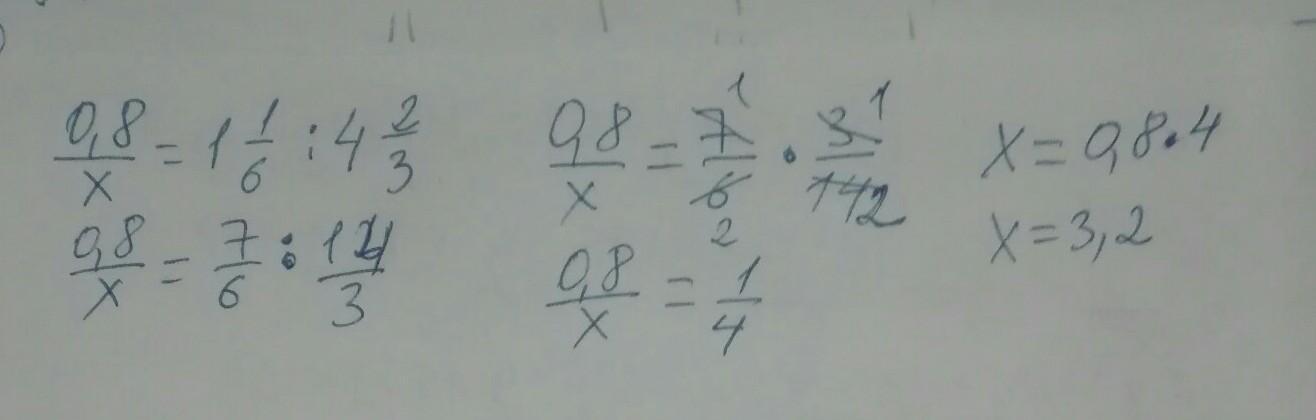 0,8/x = 1 1/6 : 4 2/3
0,8/x = 7/6 : 14/3
0,8/x = 7 1/6 2 · 3 1/14 2
0,8/x = 1/4
x = 0,8·4
x = 3,2